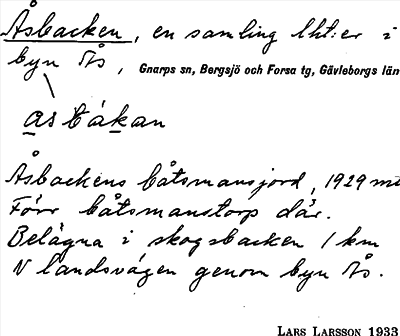 Åsbacken, en samling lht:er i
byn Ås, Gnarps sn, Bergsjö och Forsa tg, Gävleborgs län
asbákan
Åsbackens båtsmansjord, 1929 mt
Förr båtsmanstorp där.
Belägna i skogsbacken 1 km
N landsvägen genom byn Ås.
LARS LARSSON 1933